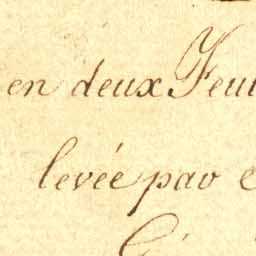 en deux Feui
levée par